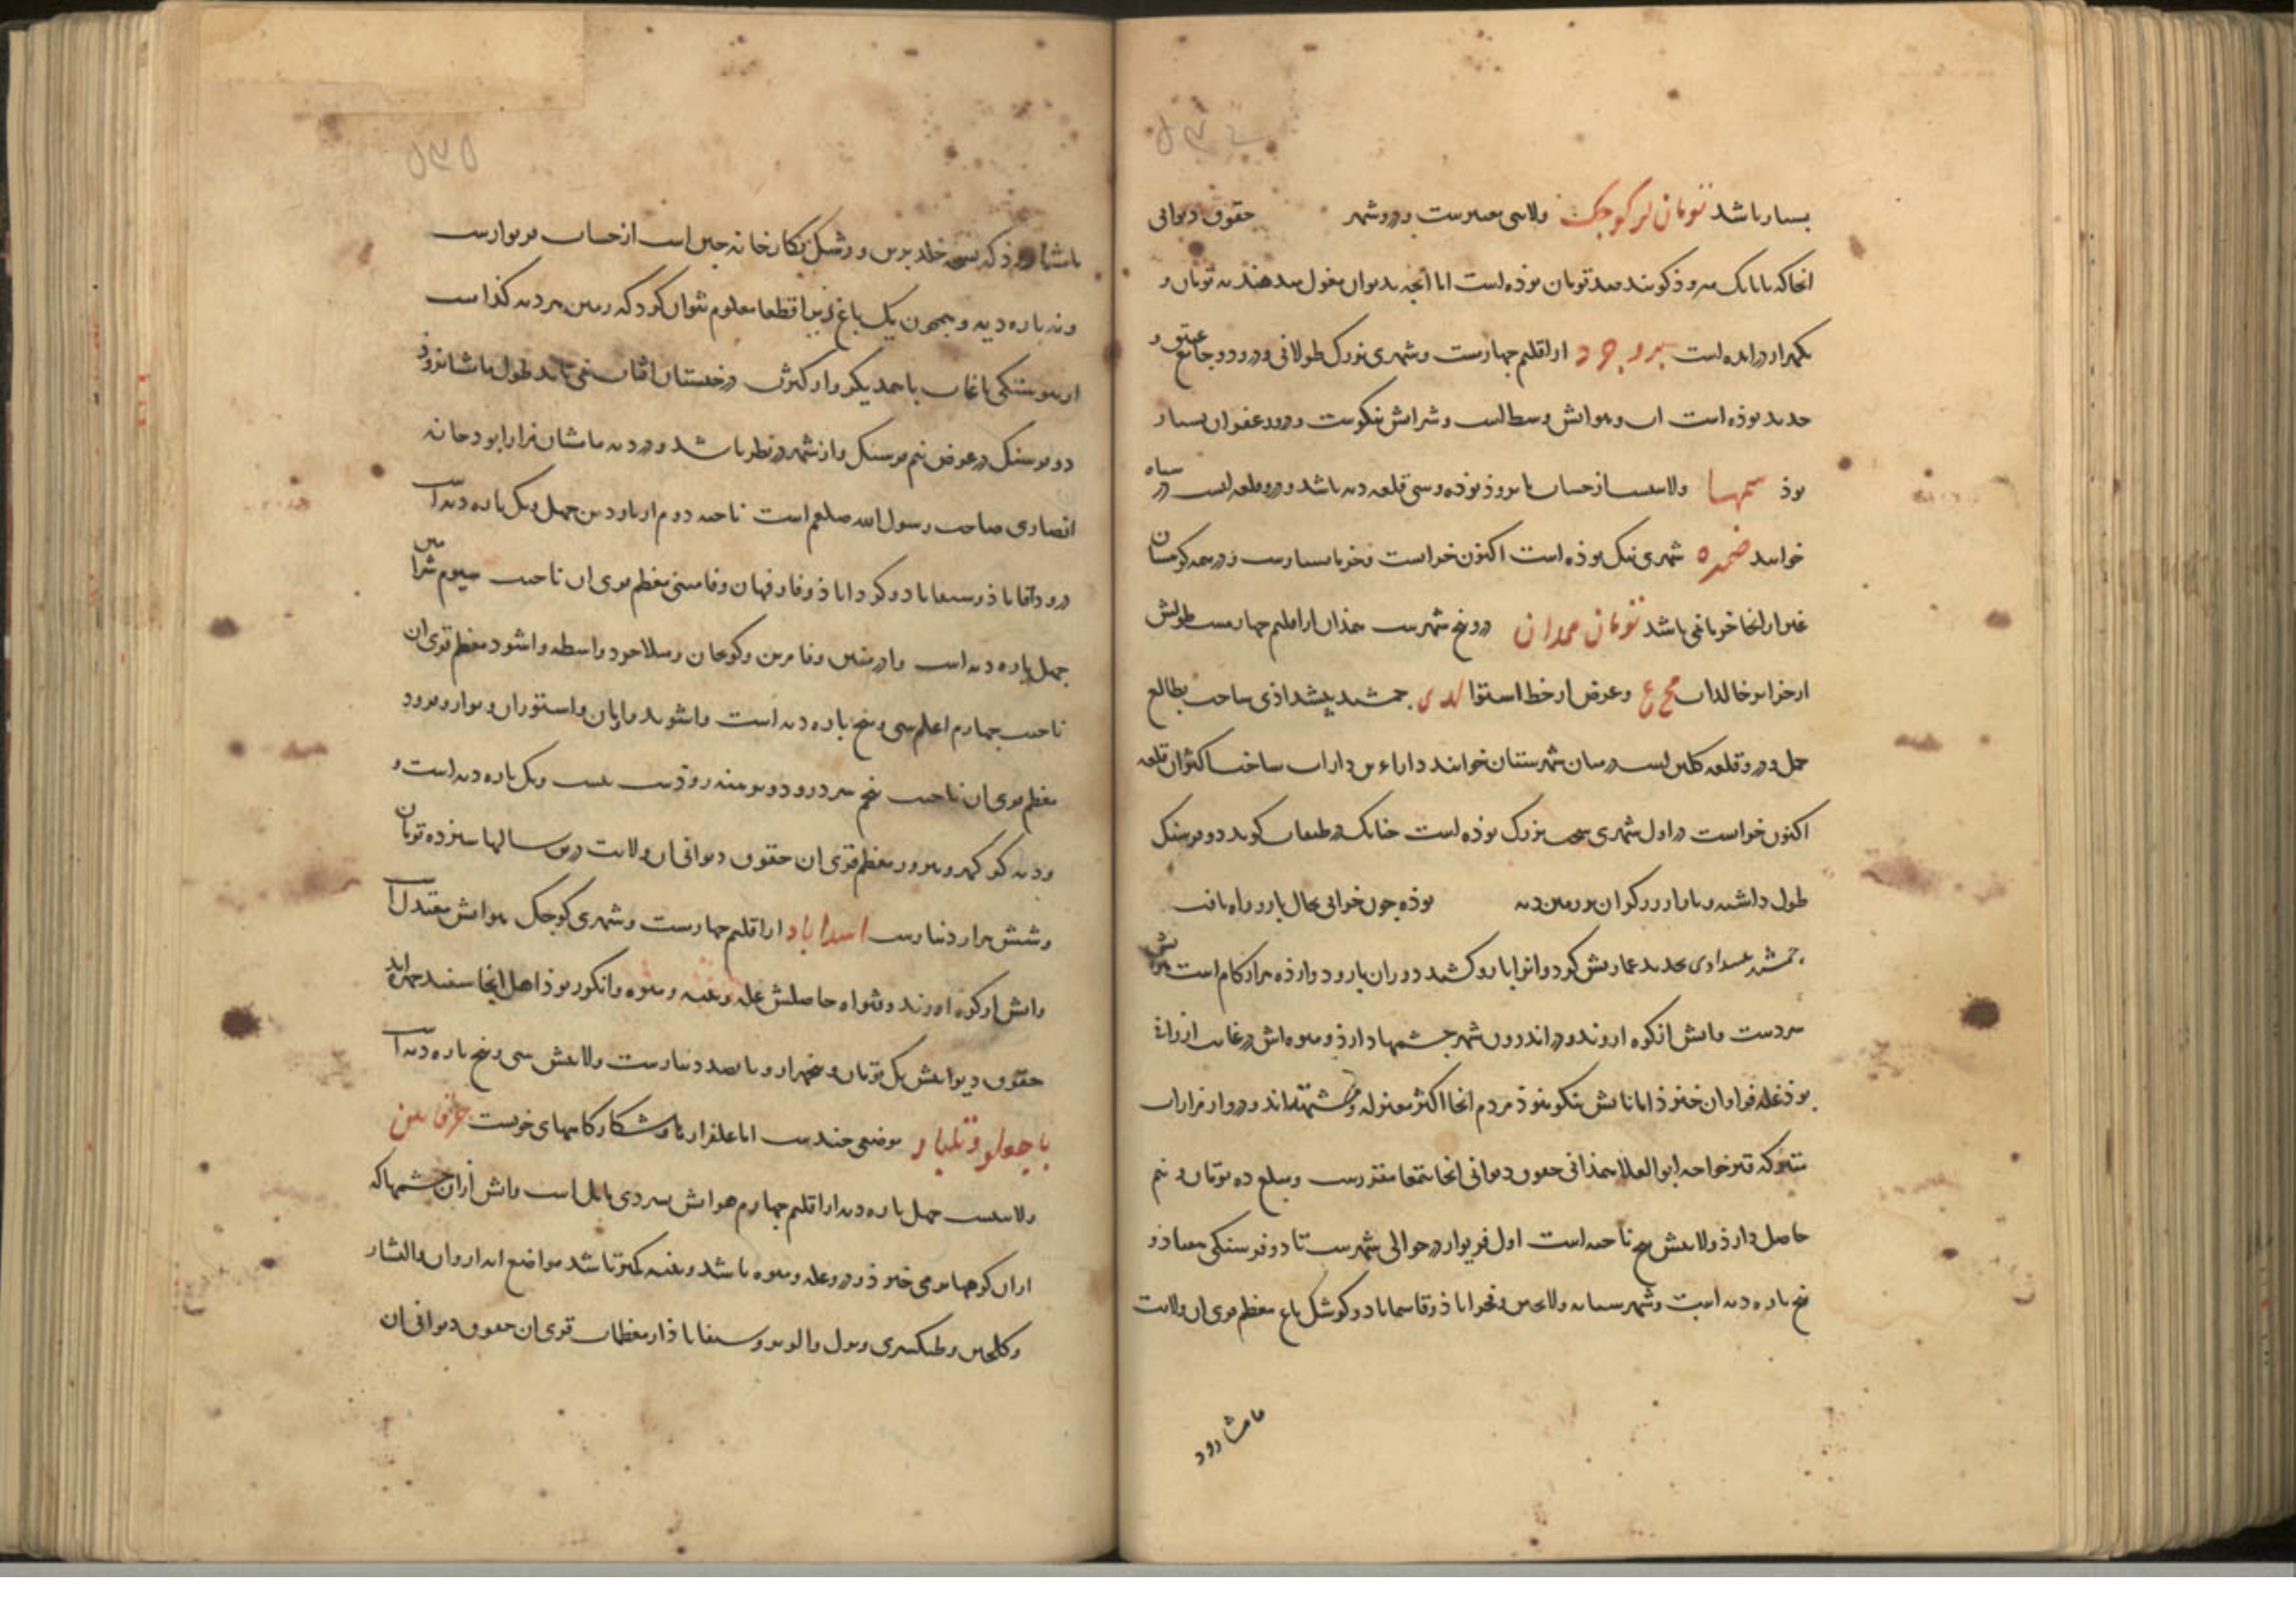 بسیار باشد تومان لر کوچک ولایتی معتبرست و درو شهر حقوق دیوانی
انجا که با تابک میرود کویند صد تومان بوده است اما آنچه بدیوان مغول میدهند نه تومان و
یکهزار درامده است بروجرد از اقلیم چهارست و شهری بزرک طولانی و درو دو جامع عتیق و
جدید بوذه است اب و هوایش وسط است و شرابش نیکوست و درو زعفران بسیار
بوذ سمها ولایتیست از حساب بوده و سی قلعه دیه باشد و درو قلعه ایست در سیاه
خوانند ضمره شهری نیک بوذه است اکنون خرابست و خرما بسیارست و در همه کوهستان
غیر از انجا خرما نمی باشد تومان همدان درو پنج شهرست همذان از اقلیم چهارمست طولش
از جزایر خالدات مح ع و عرض از خط استوا له ی جمشید پیشداذی ساخت بطالع
حمل و درو قلعه کلین است در میان شهرستان خوانند داراء بن داراب ساخت اکثر آن قلعه
اکنون خرابست در اول شهری سخت بزرک بوذه است چنانک در طبقات کوید دو فرسنک
طول داشته و بازار زرکران بر زمین دیه بوذه چون خرابی بحال بارو راه یافت
جمشید تجدید عمارتش کرد و انرا بارو کشید دوران بارو دوازده هزار کام است هواش
سردست و آبش از کوه اروند و در اندرون شهر چشمها دارذ و میوه اش در غایت ارزانی
بوذ غله فراوان خیزد اما نانش نیکو نبوذ مردم انجا اکثر معتزله و مشتهه اند و درو از مزارات
متبرکه قبر خواجه ابو العلا همذانی حقوق دیوانی انجا بتمغا مقررست و مبلغ ده تومان و نیم
حاصل دارذ ولایتش پنج ناحیه است اول فریوار در حوالی شهرست تا دو فرسنکی هفتاد و
پنج پاره دیه است و شهرستانه و لالجین و فخراباذ و قاسماباد و کوشک باغ معظم قرای ان ولایت
ماشارود
ماشارود که نسخه خلد برین و رشک نکارخانه چین است از حساب فریوارست
و نه پاره دیه و همچون یک باغ زیرا قطعا معلوم نتوان کرد که زمین هر دیه کذامست
از پیوستکی باغات با همدیکر و از کثرت درختستان افتاب نمی تابد طول ماشانرود
دو فرسنک در عرض نیم فرسنک و از شهر در نظر باشد و در دیه ماشان مزار ابو دجانه
انصاری صاحب رسول الله صلعم است ناحیه دوم ازمادین چهل و یک پاره دیه است
درو داقاباذ و سیفاباد و کرداباذ و فارفهان و فامستی معظم قرای ان ناحیت سیوم شراهین
چهل پاره دیه است و ادرمنین و فامرین و کوعجان و میلاجرد و اسطه و اشود معظم قری ان
ناحیت چهارم اعلم سی و پنج پاره دیه است و اشوند و ابان و استوران و موار و مرود
معظم قری ان ناحیت پنجم سردرود و برمنه رودست بیست و یک پاره دیه است و
و دیه کو کهر و مرور معظم قری ان حقوق دیوانی ان ولایت درین سالها سیزده تومان
و شش هزار دینارست اسداباد از اقلیم چهارست و شهری کوچک هوایش معتدل است
و ابش از کوه اورند و قنوات حاصلش غله و پنبه و میوه و انکور بوذ اهل انجا سفید چهره اند
حقوق دیوانیش یک تومان و پنجهزار و پانصد دینارست ولایتش سی و پنج پاره دیه است
باجعلو و تلبار موضعی چندست اما علفزارها و شکار کاههای خوبست خرقانین
ولایتیست چهل پاره دیه از اقلیم چهارم هوایش بسردی مایل است و ابش از ان چشمها که
از ان کوهها بر می خیزد و درو غله و میوه باشد و پنبه کمتر باشد مواضع ابه اروان و الشار
و کلنجین و طبکسری و مول و الویر و سیفاباذ از معظمات قری ان حقوق دیوانی ان